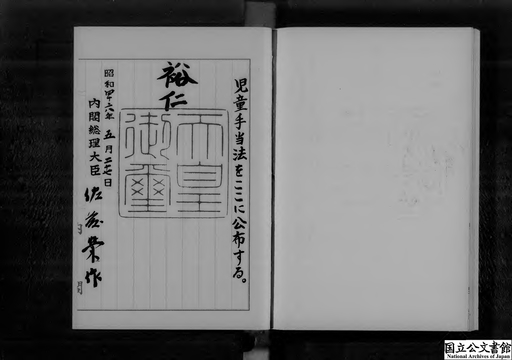 児童手当法をここに公布する。
裕仁
天皇
御璽
昭和四十六年五月二十七日
内閣総理大臣 佐藤榮作
国立公文書館
National Archives of Japan